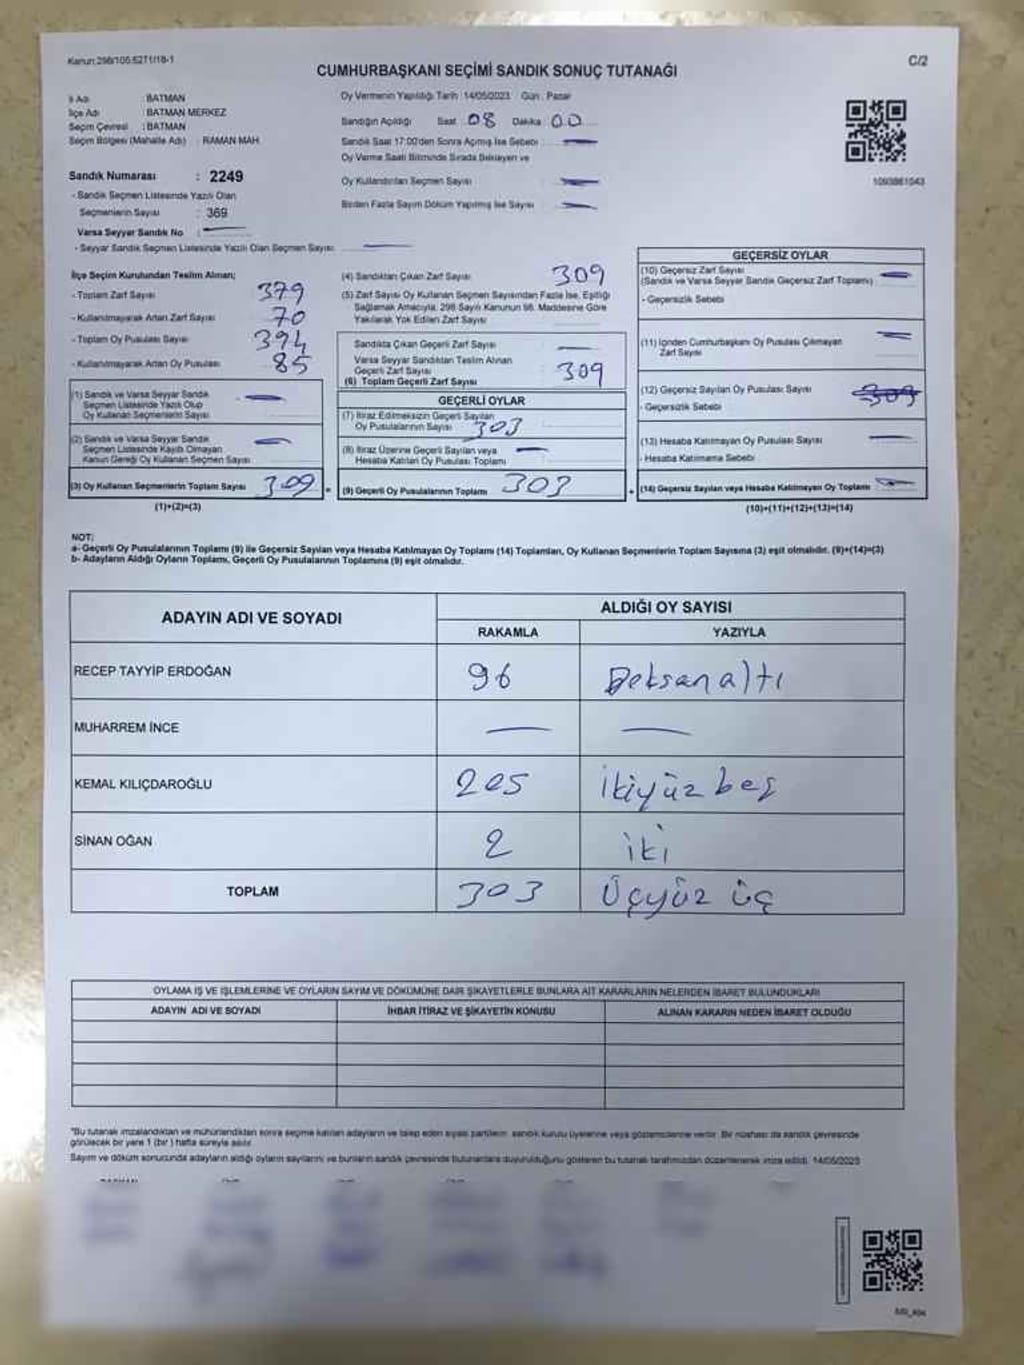 Kanun:298/105.62T1/18-1
C/2
CUMHURBAŞKANI SEÇİMİ SANDIK SONUÇ TUTANAĞI
İl Adı : BATMAN
İlçe Adı : BATMAN MERKEZ
Seçim Çevresi : BATMAN
Seçim Bölgesi (Mahalle Adı) : RAMAN MAH.
Sandık Numarası : 2249
- Sandık Seçmen Listesinde Yazılı Olan
Seçmenlerin Sayısı : 369
Varsa Seyyar Sandık No :
- Seyyar Sandık Seçmen Listesinde Yazılı Olan Seçmen Sayısı
Oy Vermenin Yapıldığı Tarih : 14/05/2023 Gün : Pazar
Sandığın Açıldığı Saat 08 Dakika 00
Sandık Saat 17:00'den Sonra Açılmış İse Sebebi
Oy Verme Saati Bitiminde Sırada Bekleyen ve
Oy Kullandırılan Seçmen Sayısı
Birden Fazla Sayım Döküm Yapılmış İse Sayısı
1093861043
İlçe Seçim Kurulundan Teslim Alınan;
- Toplam Zarf Sayısı 379
- Kullanılmayarak Artan Zarf Sayısı 70
- Toplam Oy Pusulası Sayısı 394
- Kullanılmayarak Artan Oy Pusulası 85
(1) Sandık ve Varsa Seyyar Sandık
Seçmen Listesinde Yazılı Olup
Oy Kullanan Seçmenlerin Sayısı
(2) Sandık ve Varsa Seyyar Sandık
Seçmen Listesinde Kayıtlı Olmayan
Kanun Gereği Oy Kullanan Seçmen Sayısı
(3) Oy Kullanan Seçmenlerin Toplam Sayısı 309
(1)+(2)=(3)
(4) Sandıktan Çıkan Zarf Sayısı 309
(5) Zarf Sayısı Oy Kullanan Seçmen Sayısından Fazla İse, Eşitliği
Sağlamak Amacıyla, 298 Sayılı Kanunun 98. Maddesine Göre
Yakılarak Yok Edilen Zarf Sayısı
Sandıkta Çıkan Geçerli Zarf Sayısı
Varsa Seyyar Sandıktan Teslim Alınan
Geçerli Zarf Sayısı
(6) Toplam Geçerli Zarf Sayısı 309
GEÇERLİ OYLAR
(7) İtiraz Edilmeksizin Geçerli Sayılan
Oy Pusulalarının Sayısı 303
(8) İtiraz Üzerine Geçerli Sayılan veya
Hesaba Katılan Oy Pusulası Toplamı
= (9) Geçerli Oy Pusulalarının Toplamı 303
GEÇERSİZ OYLAR
(10) Geçersiz Zarf Sayısı
(Sandık ve Varsa Seyyar Sandık Geçersiz Zarf Toplamı)
- Geçersizlik Sebebi
(11) İçinden Cumhurbaşkanı Oy Pusulası Çıkmayan
Zarf Sayısı
(12) Geçersiz Sayılan Oy Pusulası Sayısı 309
- Geçersizlik Sebebi
(13) Hesaba Katılmayan Oy Pusulası Sayısı
- Hesaba Katılmama Sebebi
+ (14) Geçersiz Sayılan veya Hesaba Katılmayan Oy Toplamı
(10)+(11)+(12)+(13)=(14)
NOT:
a- Geçerli Oy Pusulalarının Toplamı (9) ile Geçersiz Sayılan veya Hesaba Katılmayan Oy Toplamı (14) Toplamları, Oy Kullanan Seçmenlerin Toplam Sayısına (3) eşit olmalıdır. (9)+(14)=(3)
b- Adayların Aldığı Oyların Toplamı, Geçerli Oy Pusulalarının Toplamına (9) eşit olmalıdır.
ADAYIN ADI VE SOYADI
ALDIĞI OY SAYISI
RAKAMLA YAZIYLA
RECEP TAYYİP ERDOĞAN 96 Doksan altı
MUHARREM İNCE
KEMAL KILIÇDAROĞLU 205 İkiyüz beş
SİNAN OĞAN 2 iki
TOPLAM 303 Üçyüz üç
OYLAMA İŞ VE İŞLEMLERİNE VE OYLARIN SAYIM VE DÖKÜMÜNE DAİR ŞİKAYETLERLE BUNLARA AİT KARARLARIN NELERDEN İBARET BULUNDUKLARI
ADAYIN ADI VE SOYADI İHBAR İTİRAZ VE ŞİKAYETİN KONUSU ALINAN KARARIN NEDEN İBARET OLDUĞU
"Bu tutanak imzalandıktan ve mühürlendikten sonra seçime katılan adayların ve talep eden siyasi partilerin sandık kurulu üyelerine veya gözlemcilerine verilir. Bir nüshası da sandık çevresinde
görülecek bir yere 1 (bir) hafta süreyle asılır.
Sayım ve döküm sonucunda adayların aldığı oyların sayılarını ve bunların sandık çevresinde bulunanlara duyurulduğunu gösteren bu tutanak tarafımızdan düzenlenerek imza edildi. 14/05/2023